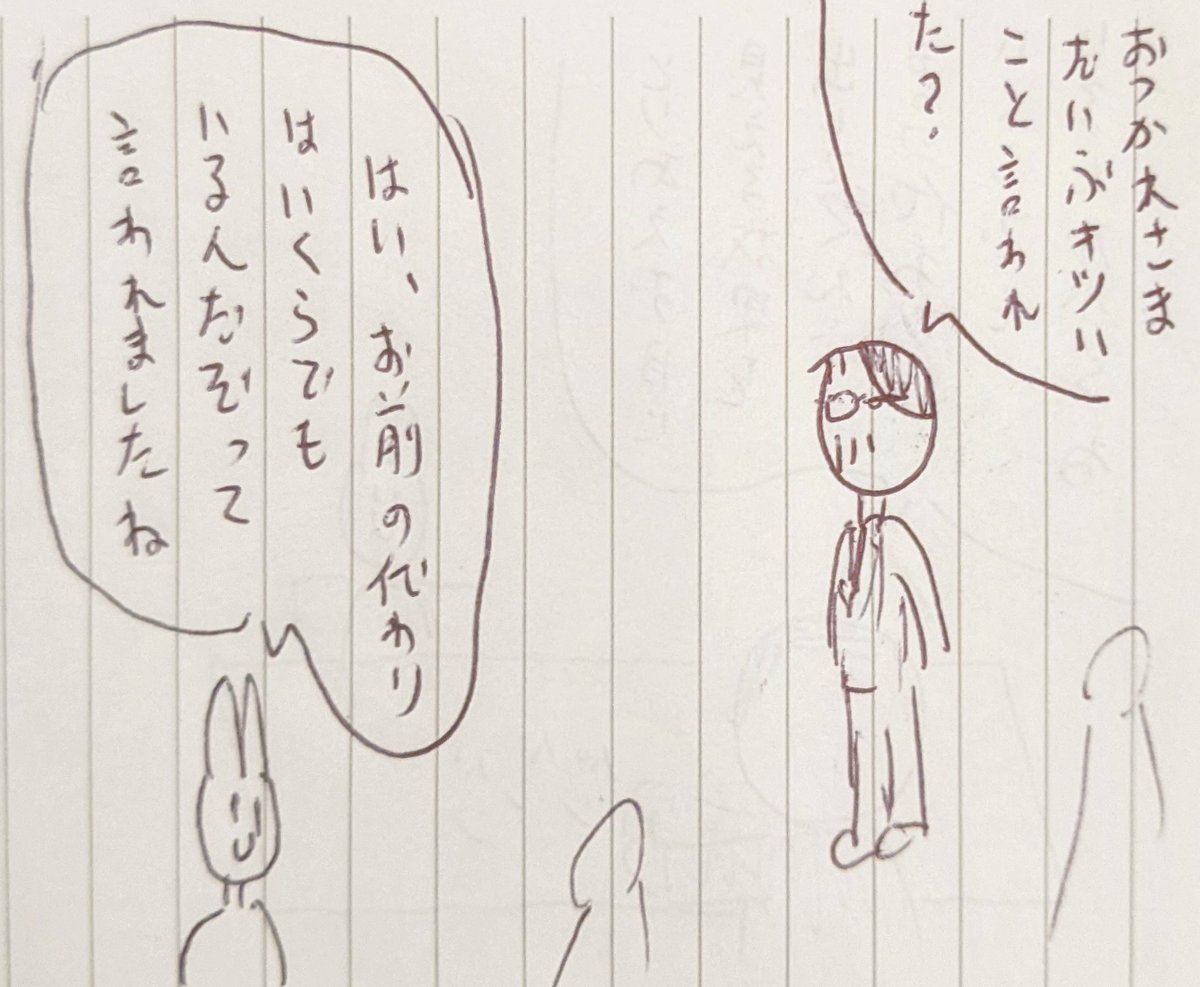 おつかれさま
だいぶキツい
こと言われ
た?
はい、お前の代わり
はいくらでも
いるんだぞって
言われましたね